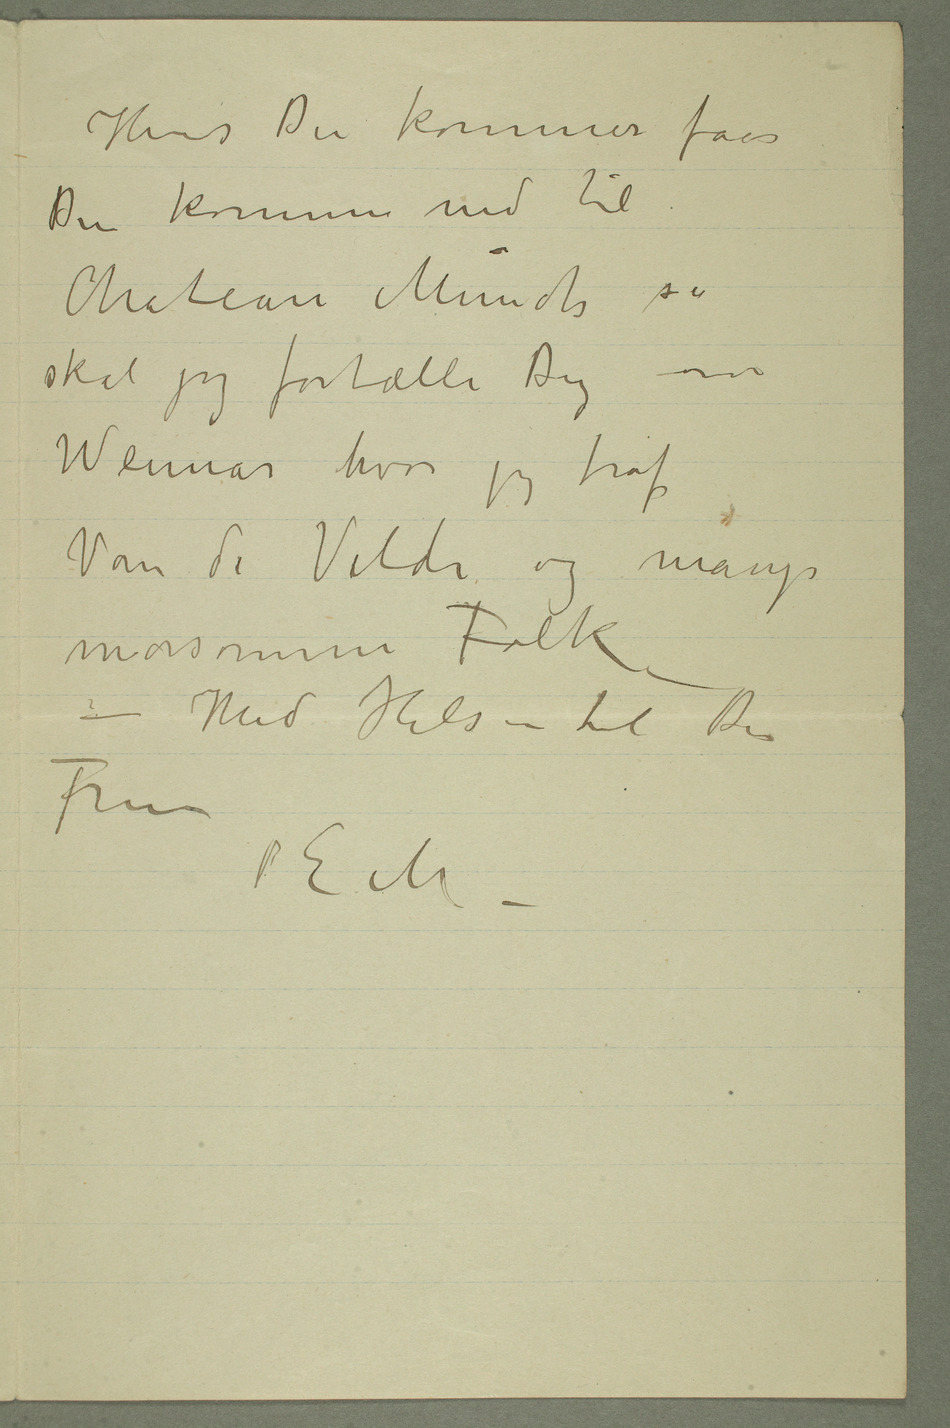 Hvis Du kommer faar
Du komme ned til
Chateau Munch så
skal jeg fortælle Dig om
Weimar hvor jeg traf
Van de Velde og mange
morsomme Folk
– Med Hilsen til Din
Frue
E M –